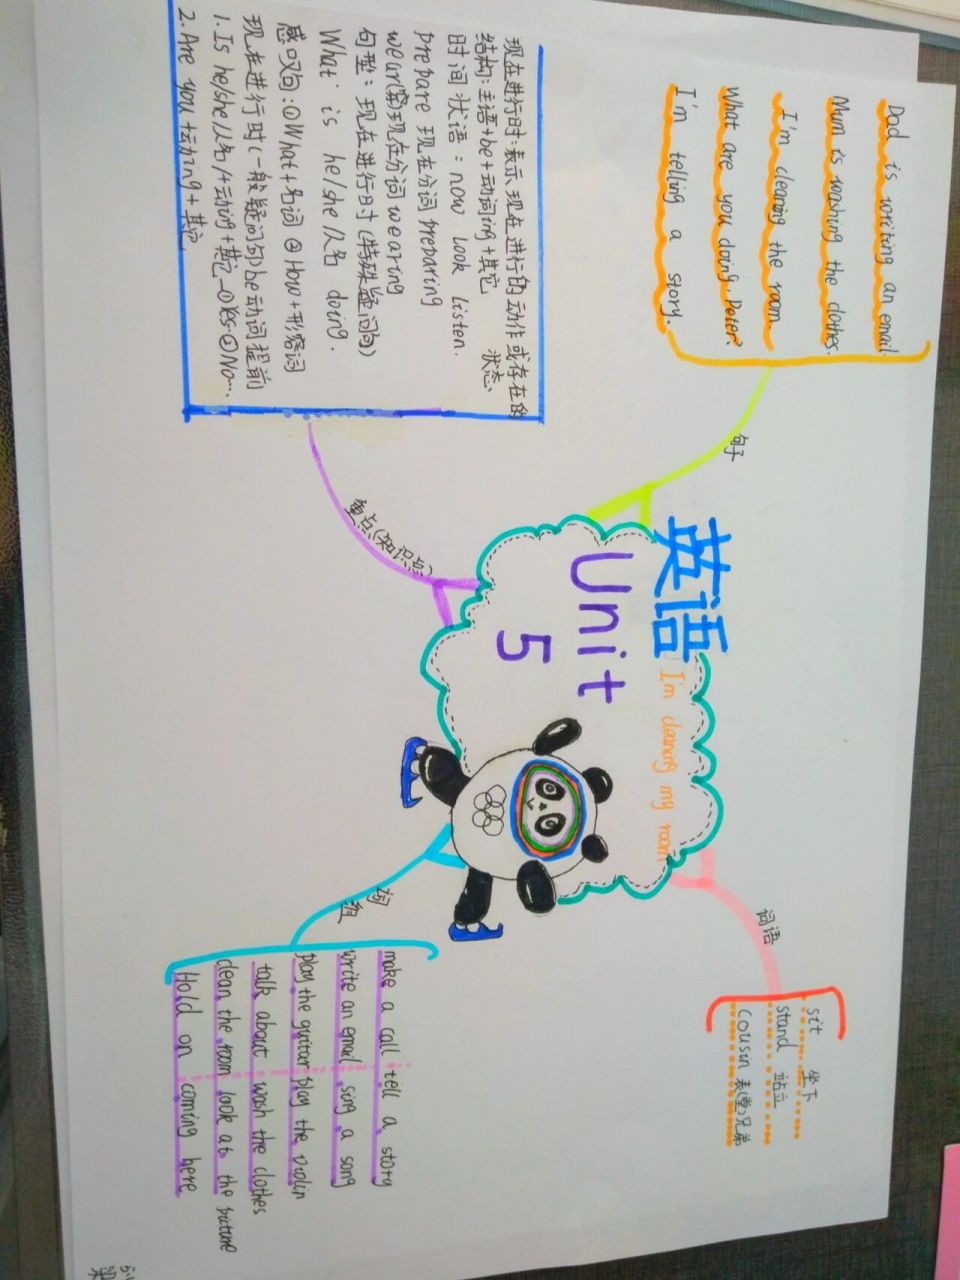 英语
Unit
5
I'm cleaning my room
句子
Dad is writing an email.
Mum is washing the clothes.
I'm cleaning the room.
What are you doing Peter?
I'm telling a story.
词语
sit 坐下
stand 站立
cousin 表(堂)兄弟
重点(知识点)
现在进行时:表示现在进行的动作或存在的
状态
结构:主语+be+动词ing+其它
时间状语:now look listen.
prepare 现在分词 preparing
wear(穿现在分词wearing
句型:现在进行时(特殊疑问句)
What is he/she/人名 doing.
感叹句:①What+名词 ②How+形容词
现在进行时(一般疑问句)be动词提前
1. Is he/she/人名/+动ing+其它_①Yes.②No...
2. Are you 动ing+其它
词组
make a call tell a story
write an email sing a song
play the guitar play the violin
talk about wash the clothes
clean the room look at the picture
Hold on coming here